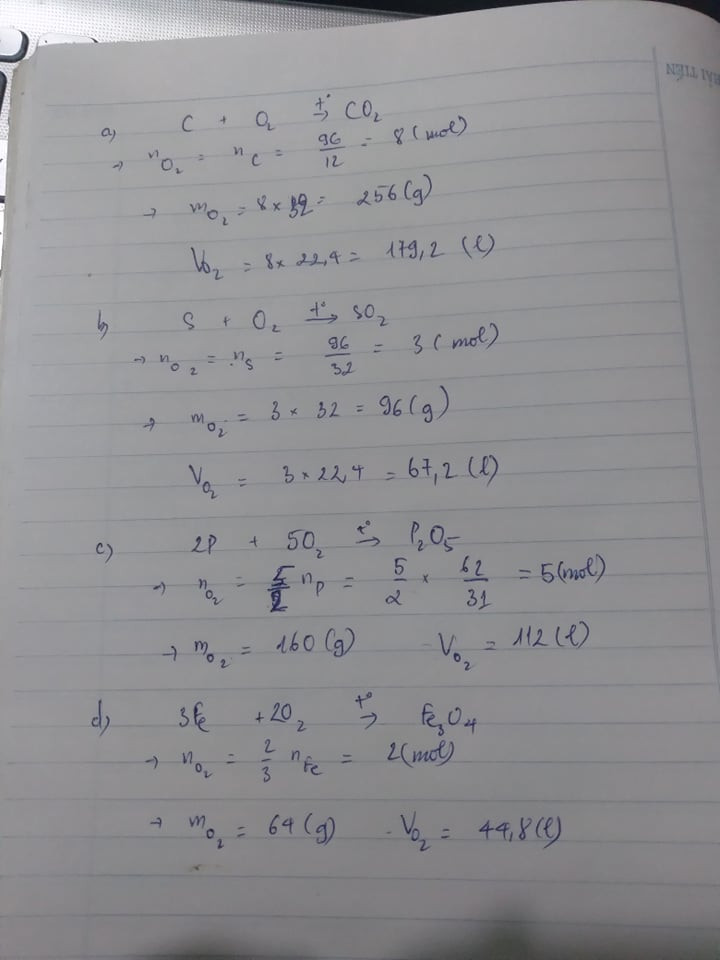 BÀI TIẾN
a) C + O₂ t°→ CO₂
→ nO₂ = nC = 96/12 = 8 (mol)
→ mO₂ = 8 × 32 = 256 (g)
VO₂ = 8 × 22,4 = 179,2 (l)
b) S + O₂ t°→ SO₂
→ nO₂ = nS = 96/32 = 3 (mol)
→ mO₂ = 3 × 32 = 96 (g)
VO₂ = 3 × 22,4 = 67,2 (l)
c) 2P + 5O₂ t°→ P₂O₅
→ nO₂ = 5/2 nP = 5/2 × 62/31 = 5 (mol)
→ mO₂ = 160 (g) - VO₂ = 112 (l)
d) 3Fe + 2O₂ t°→ Fe₃O₄
→ nO₂ = 2/3 nFe = 2 (mol)
→ mO₂ = 64 (g) - VO₂ = 44,8 (l)